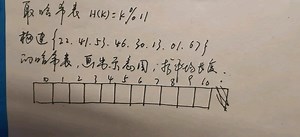 取哈希表 H(K)=K%11
构造{22.41.53.46.30.13.01.67}
的哈希表,画出示意图,求平均长度.
0 1 2 3 4 5 6 7 8 9 10